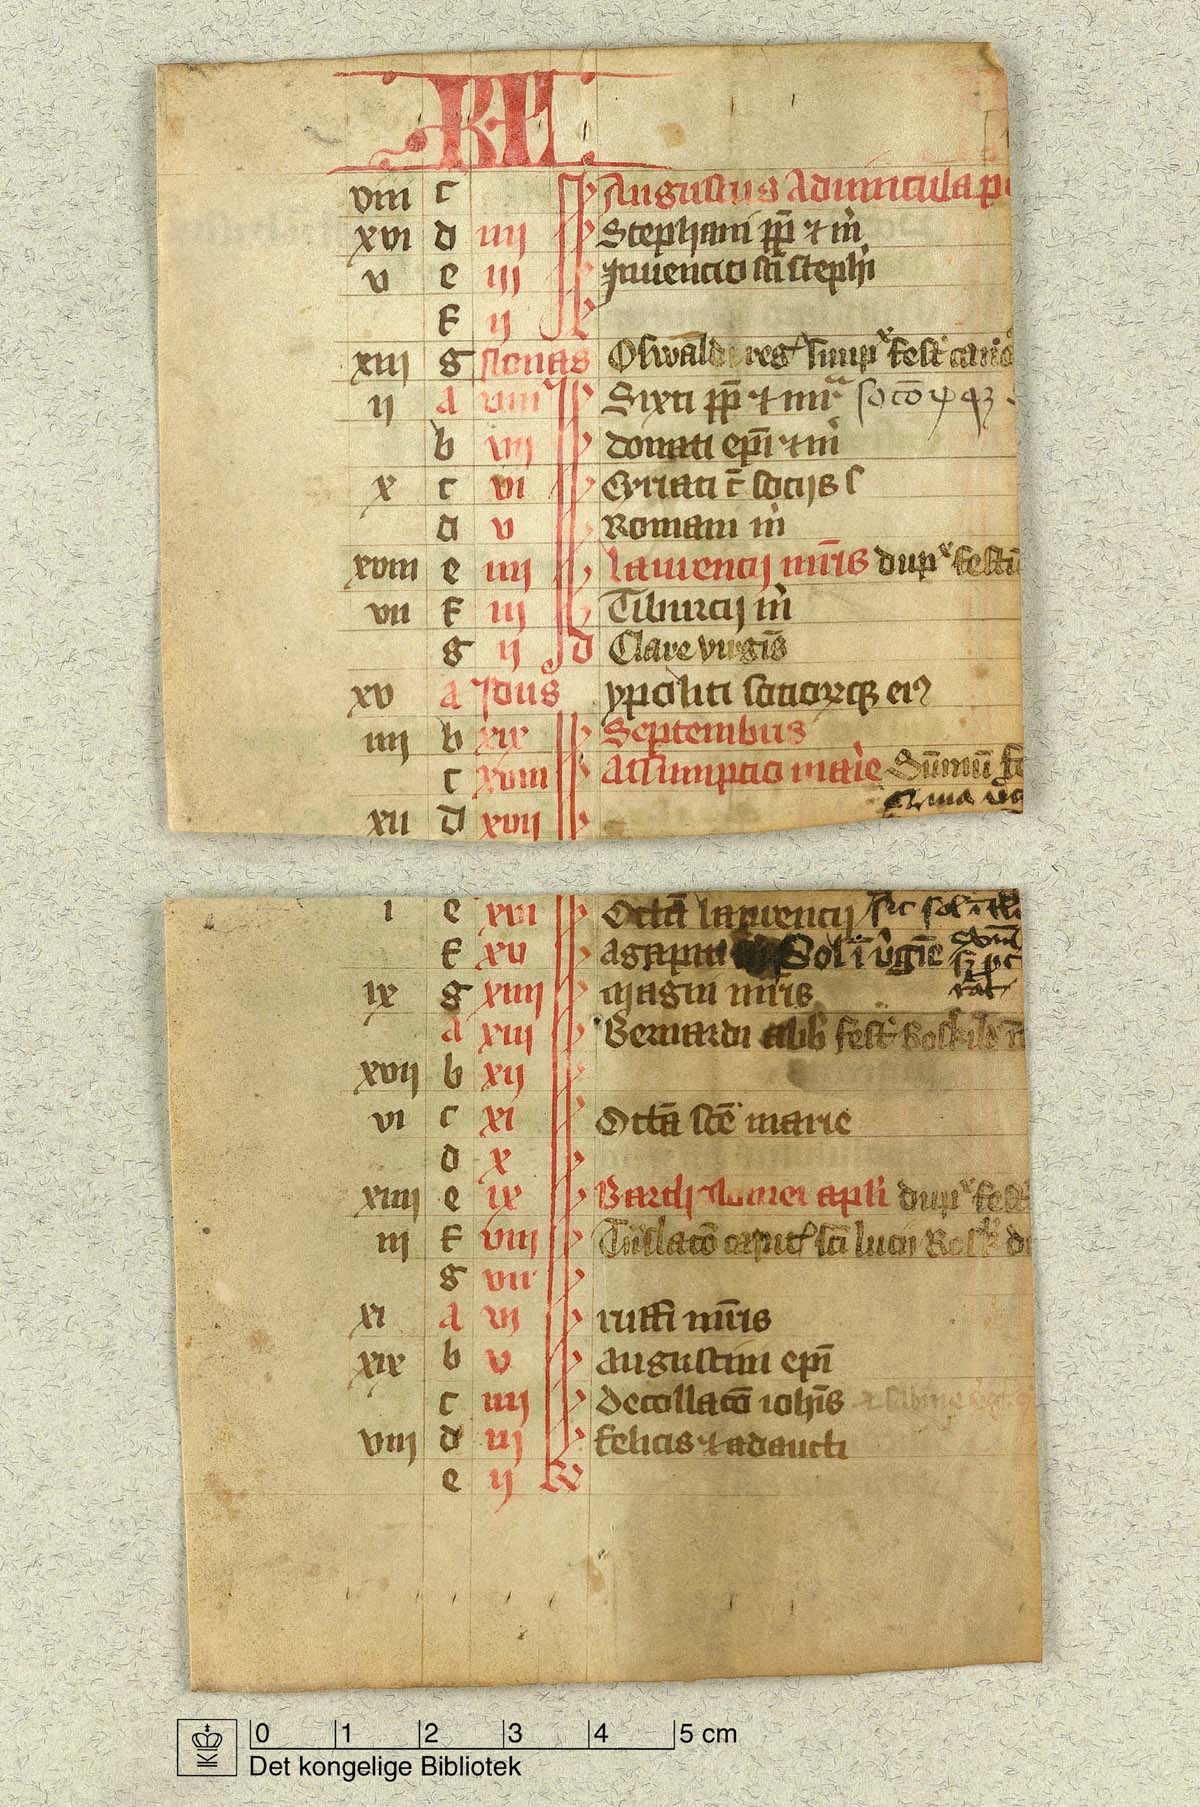 KL
viii c Augustus Aduincula
xvi d iiii Stephani pp̄ ⁊ m̄
v e iii Inuencio sc̄i steph̄i
f ii
xiii g Nonas Oswaldi reg simp fest
ii a viii Sixti pp̄ ⁊ mr̄
b vii donati ep̄i ⁊ m̄
x c vi Cyriaci c̄ sociis s
d v Romani m̄
xviii e iiii laurencij mr̄is dup festū
vii f iii Tiburcij m̄
g ii d Clare virgīs
xv a Idus ypoliti socior̄qꝫ eiꝰ
iiii b xix Septembus
c xviii Assumptio marie Summū
xii d xvii
i e xvi Octā laurencij sic sol ī
f xv agapiti Sol ī v̄gīe
ix g xiiii Magni mr̄is
a xiii Bernardi abb fest
xvii b xii
vi c xi Octā sc̄e marie
d x
xiiii e ix Bartholomei apl̄i dup fest
iii f viii Tn̄slacō caput sc̄i lucii Rosk
g vii
xi a vi ruffi mr̄is
xix b v augustini ep̄i
c iiii decollacō ioh̄is
viii d iii felicis ⁊ adaucti
e ii
0 1 2 3 4 5 cm
Det kongelige Bibliotek